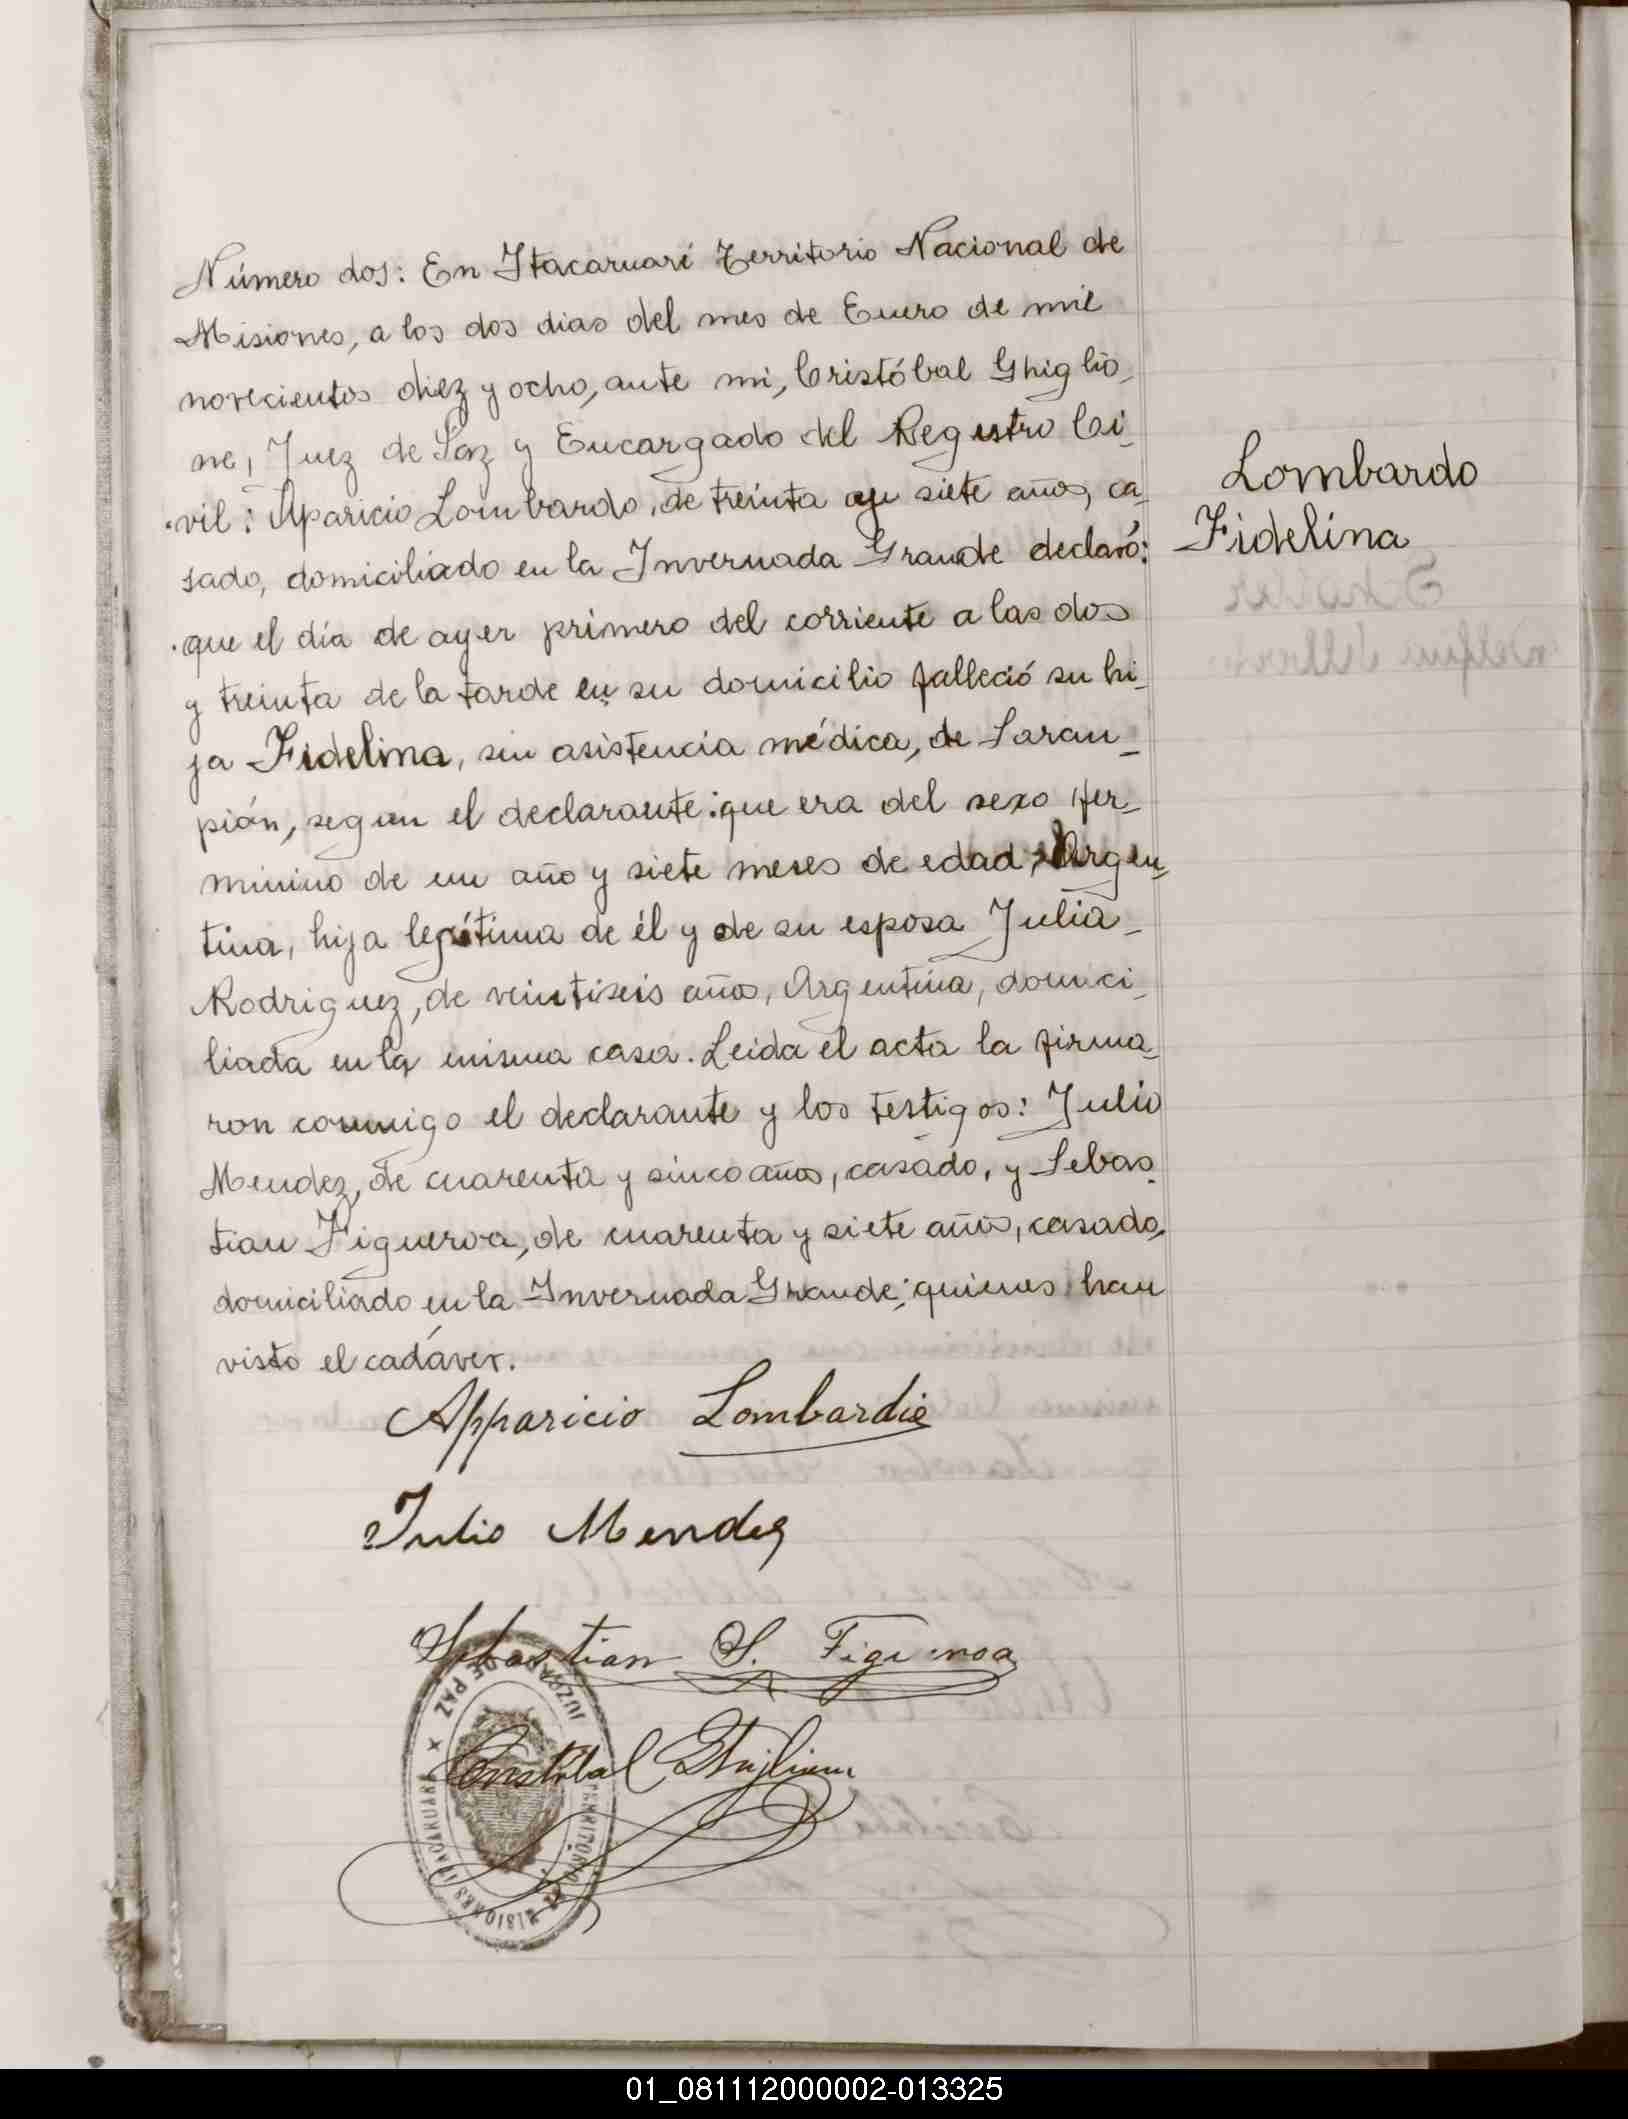 Número dos: En Itacaruaré Territorio Nacional de
Misiones, a los dos dias del mes de Enero de mil
novecientos diez y ocho, ante mi, Cristóbal Ghiglio_
ne, Juez de Paz y Encargado del Registro Ci_
vil: Aparicio Lombardo, de treinta y siete años, ca_
sado, domiciliado en la Invernada Grande declaró:
que el día de ayer primero del corriente a las dos
y treinta de la tarde en su domicilio falleció su hi_
ja Fidelina, sin asistencia médica, de Saram_
pión, segun el declarante: que era del sexo fe_
minino de un año y siete meses de edad, Argen_
tina, hija legítima de él y de su esposa Julia_
Rodriguez, de veintiseis años, Argentina, domici_
liada en la misma casa. Leida el acta la firma_
ron conmigo el declarante y los testigos: Julio
Mendez, de cuarenta y sinco años, casado, y Sebas_
tian Figueroa, de cuarenta y siete años, casado,
domiciliado en la Invernada Grande; quienes han
visto el cadáver.
Lombardo
Fidelina
Apparicio Lombardie
Julio Mendez
Sebastian S. Figueroa
Cristóbal Ghiglione
JUZGADO DE PAZ
TERRITORIO DE MISIONES ITACARUARE
01_081112000002-013325